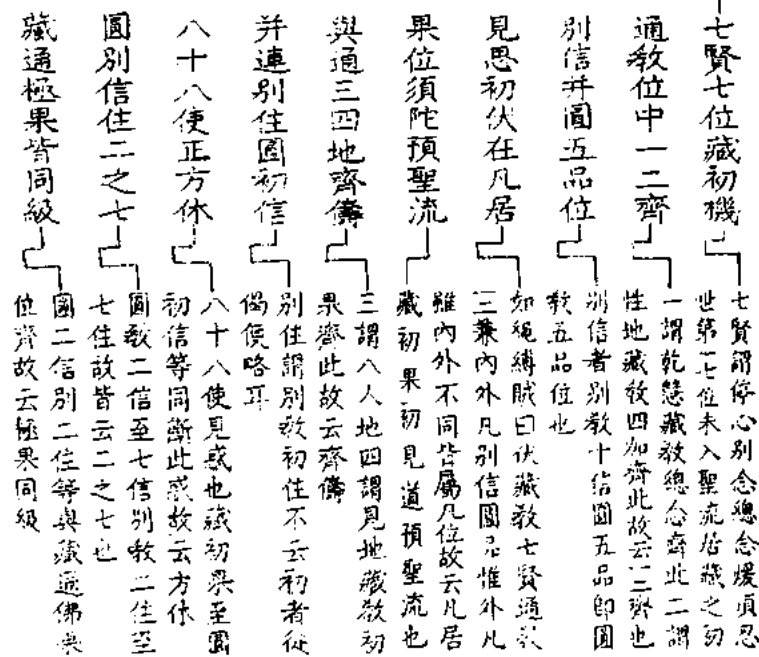 七賢七位藏初機
七賢謂停心別念總念煖頂忍
世第一七位未入聖流居藏之初
通教位中一二齊
一謂乾慧藏教總念齊此二謂
性地藏教四加齊此故云一二齊也
別信并圓五品位
別信者別教十信圓五品即圓
教五品位也
見思初伏在凡居
如繩縛賊曰伏藏教七賢通教
三兼內外凡別信圓品惟外凡
雖內外不同皆屬凡位故云凡居
果位須陀預聖流
藏初果初見道預聖流也
與通三四地齊儔
三謂八人地四謂見地藏教初
果齊此故云齊儔
并連別住圓初信
別住謂別教初住不云初者從
偈便略耳
八十八使正方休
八十八使見惑也藏初果至圓
初信等同斷此惑故云方休
圓別信住二之七
圓教二信至七信別教二住至
七住故皆云二之七也
藏通極果皆同級
圓二信別二住等與藏通佛果
位齊故云極果同級